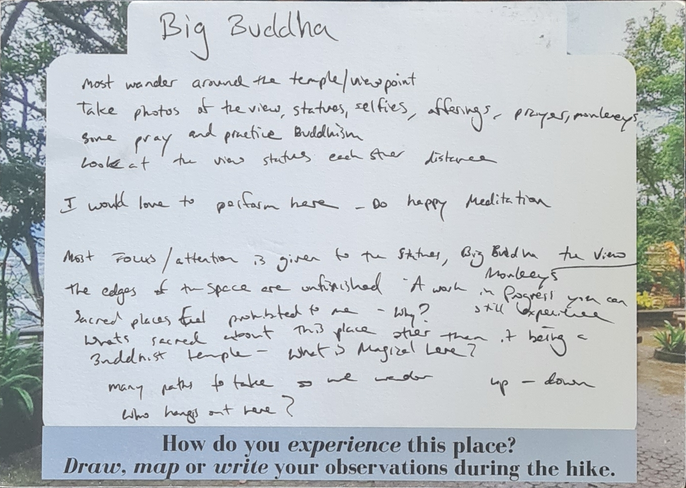 Big Buddha
Most wander around the temple/viewpoint
Take photos of the view, statues, selfies, offerings, prayer, monkeys
Some pray and practice Buddhism
Look at the view statues each other distance
I would love to perform here - Do happy Meditation
Most Focus/attention is given to the statues, Big Buddha the view
Monkeys
The edges of the space are unfinished "A work in Progress you can
still experience
Sacred places feel prohibited to me - Why?
Whats sacred about this place other than it being a
Buddhist temple - What is Magical here?
many paths to take so we wander up - down
Who hangs out here?
How do you experience this place?
Draw, map or write your observations during the hike.